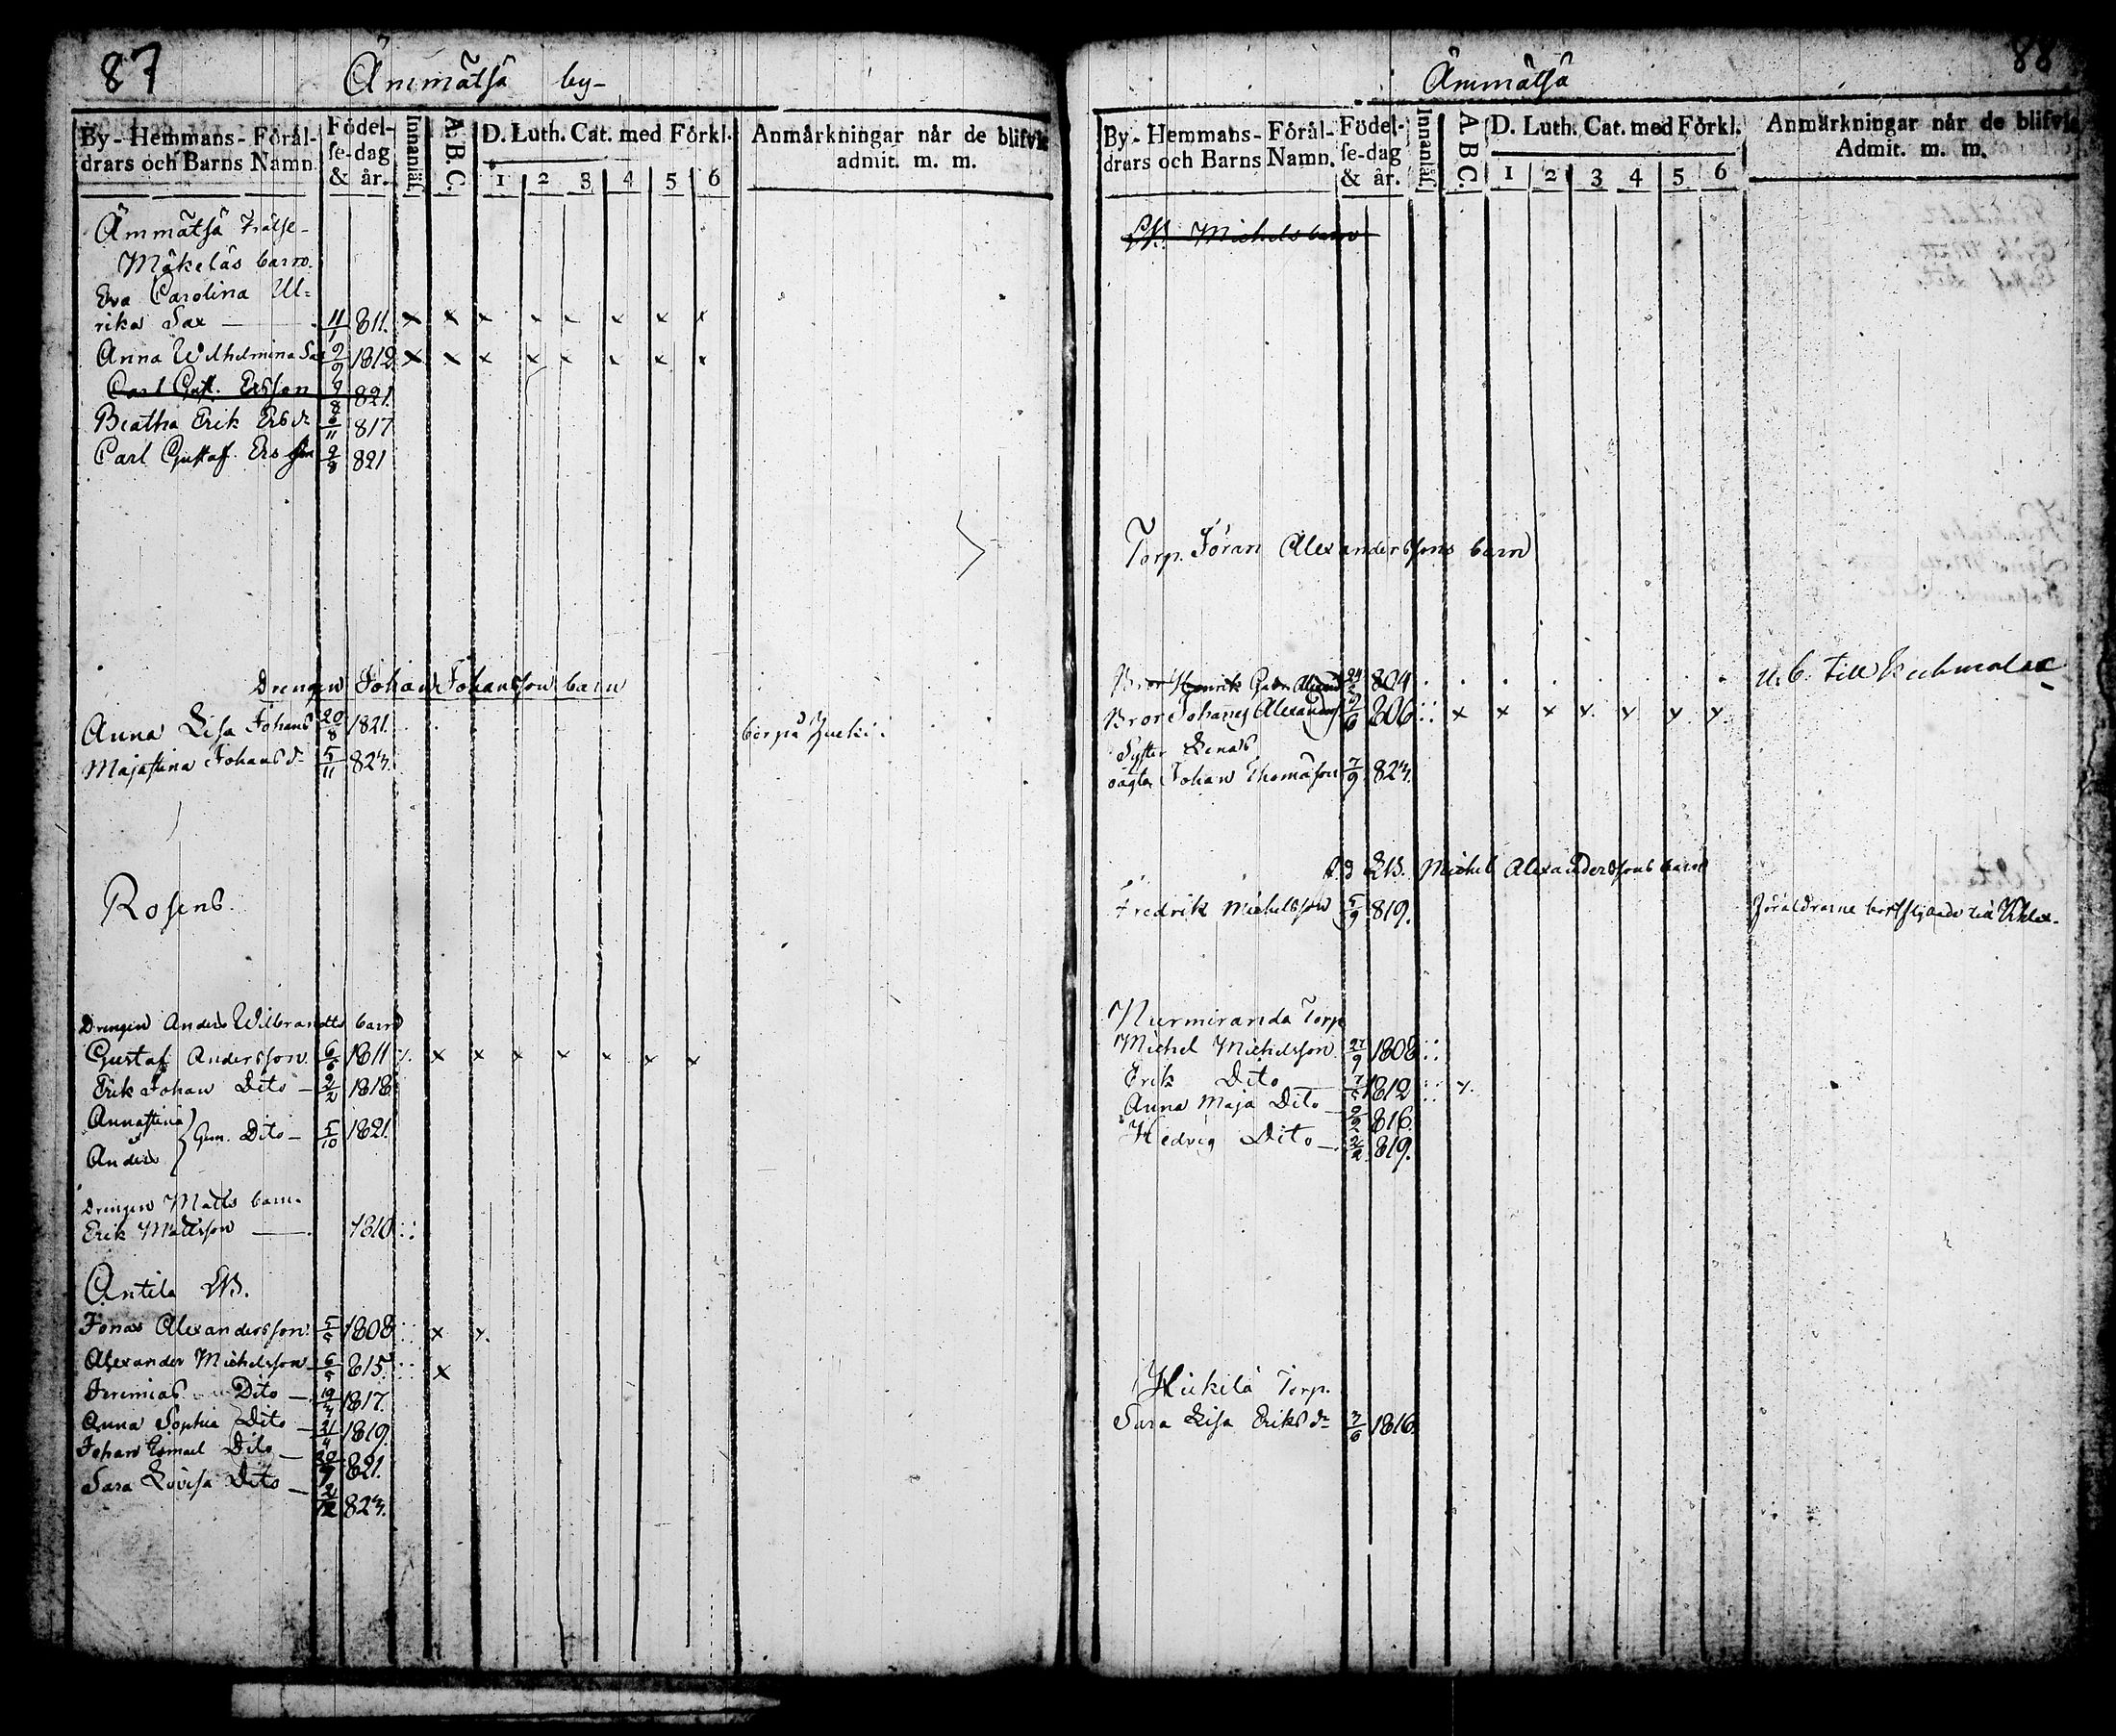 87
Ämmätsä by-
By-Hemmans-Förål-
drars och Barns Namn.
Födel-
se-dag
& år.
Innanläs.
A.B.C.
D. Luth. Cat. med Förkl.
1 2 3 4 5 6
Anmårkningar når de blifvit
admit. m. m.
Ämmätsä Frälse-
Mäkeläs barn.
Eva Carolina Ul-
rika Sax — 11/1 811. x x x x x x x x
Anna Wilhelmina Sax 9/9 1812 x x x x x x x x
Carl Gust. Ersson 9/8 821.
Beatha Erik Ersdr 6/11 817
Carl Gustaf Ersson 9/8 821
Drengen Johan Johansson barn
Anna Lisa Johans 20/8 1821.
bor på
Majastina Johansdr 5/11 823.
Rosens.
Drengen Anders Wilbrandts barn
Gustaf Andersson. 6/6 1811 x x x x x x x
Erik Johan Dito — 2/2 1818.
Annastina
Anders } Gem. Dito — 5/10 1821.
Drengen Matts barn.
Erik Mattsson — 1810
Antila
Jonas Alexandersson. 5/5 1808 x x.
Alexander Michelsson 6/5 815. x
Jeremias Dito — 19/3 1817.
Anna Sophia Dito — 21/4 1819.
Johan Dito — 821.
Sara Lovisa Dito — 2/12 823.
88
Ämmätsä
By-Hemmans-Förål-
drars och Barns Namn.
Födel-
se-dag
& år.
Innanläs.
A.B.C.
D. Luth. Cat. med Förkl.
1 2 3 4 5 6
Anmärkningar når de blifvit
Admit. m. m.
Michels barn
Torp. Jöran Alexanderssons barn
Bror Henrik 24/2 804
u. b. till
Bror Johannes Alexanders 2/6 806 x x x x x x x
Syster Lenas
oägta Johan Thomasson 7/9 823.
Michel Alexanderssons barn
Fredrik Michelsson 5/9 819.
Föräldrarne bortflyttade till
Nurmiranda Torp
Michel Michelsson 27/9 1808
Erik Dito — 7/5 1812 x.
Anna Maja Dito — 2/2 816.
Hedvig Dito — 2/2 819.
Hickilä Torp.
Sara Lisa Eriksdr 3/6 1816.